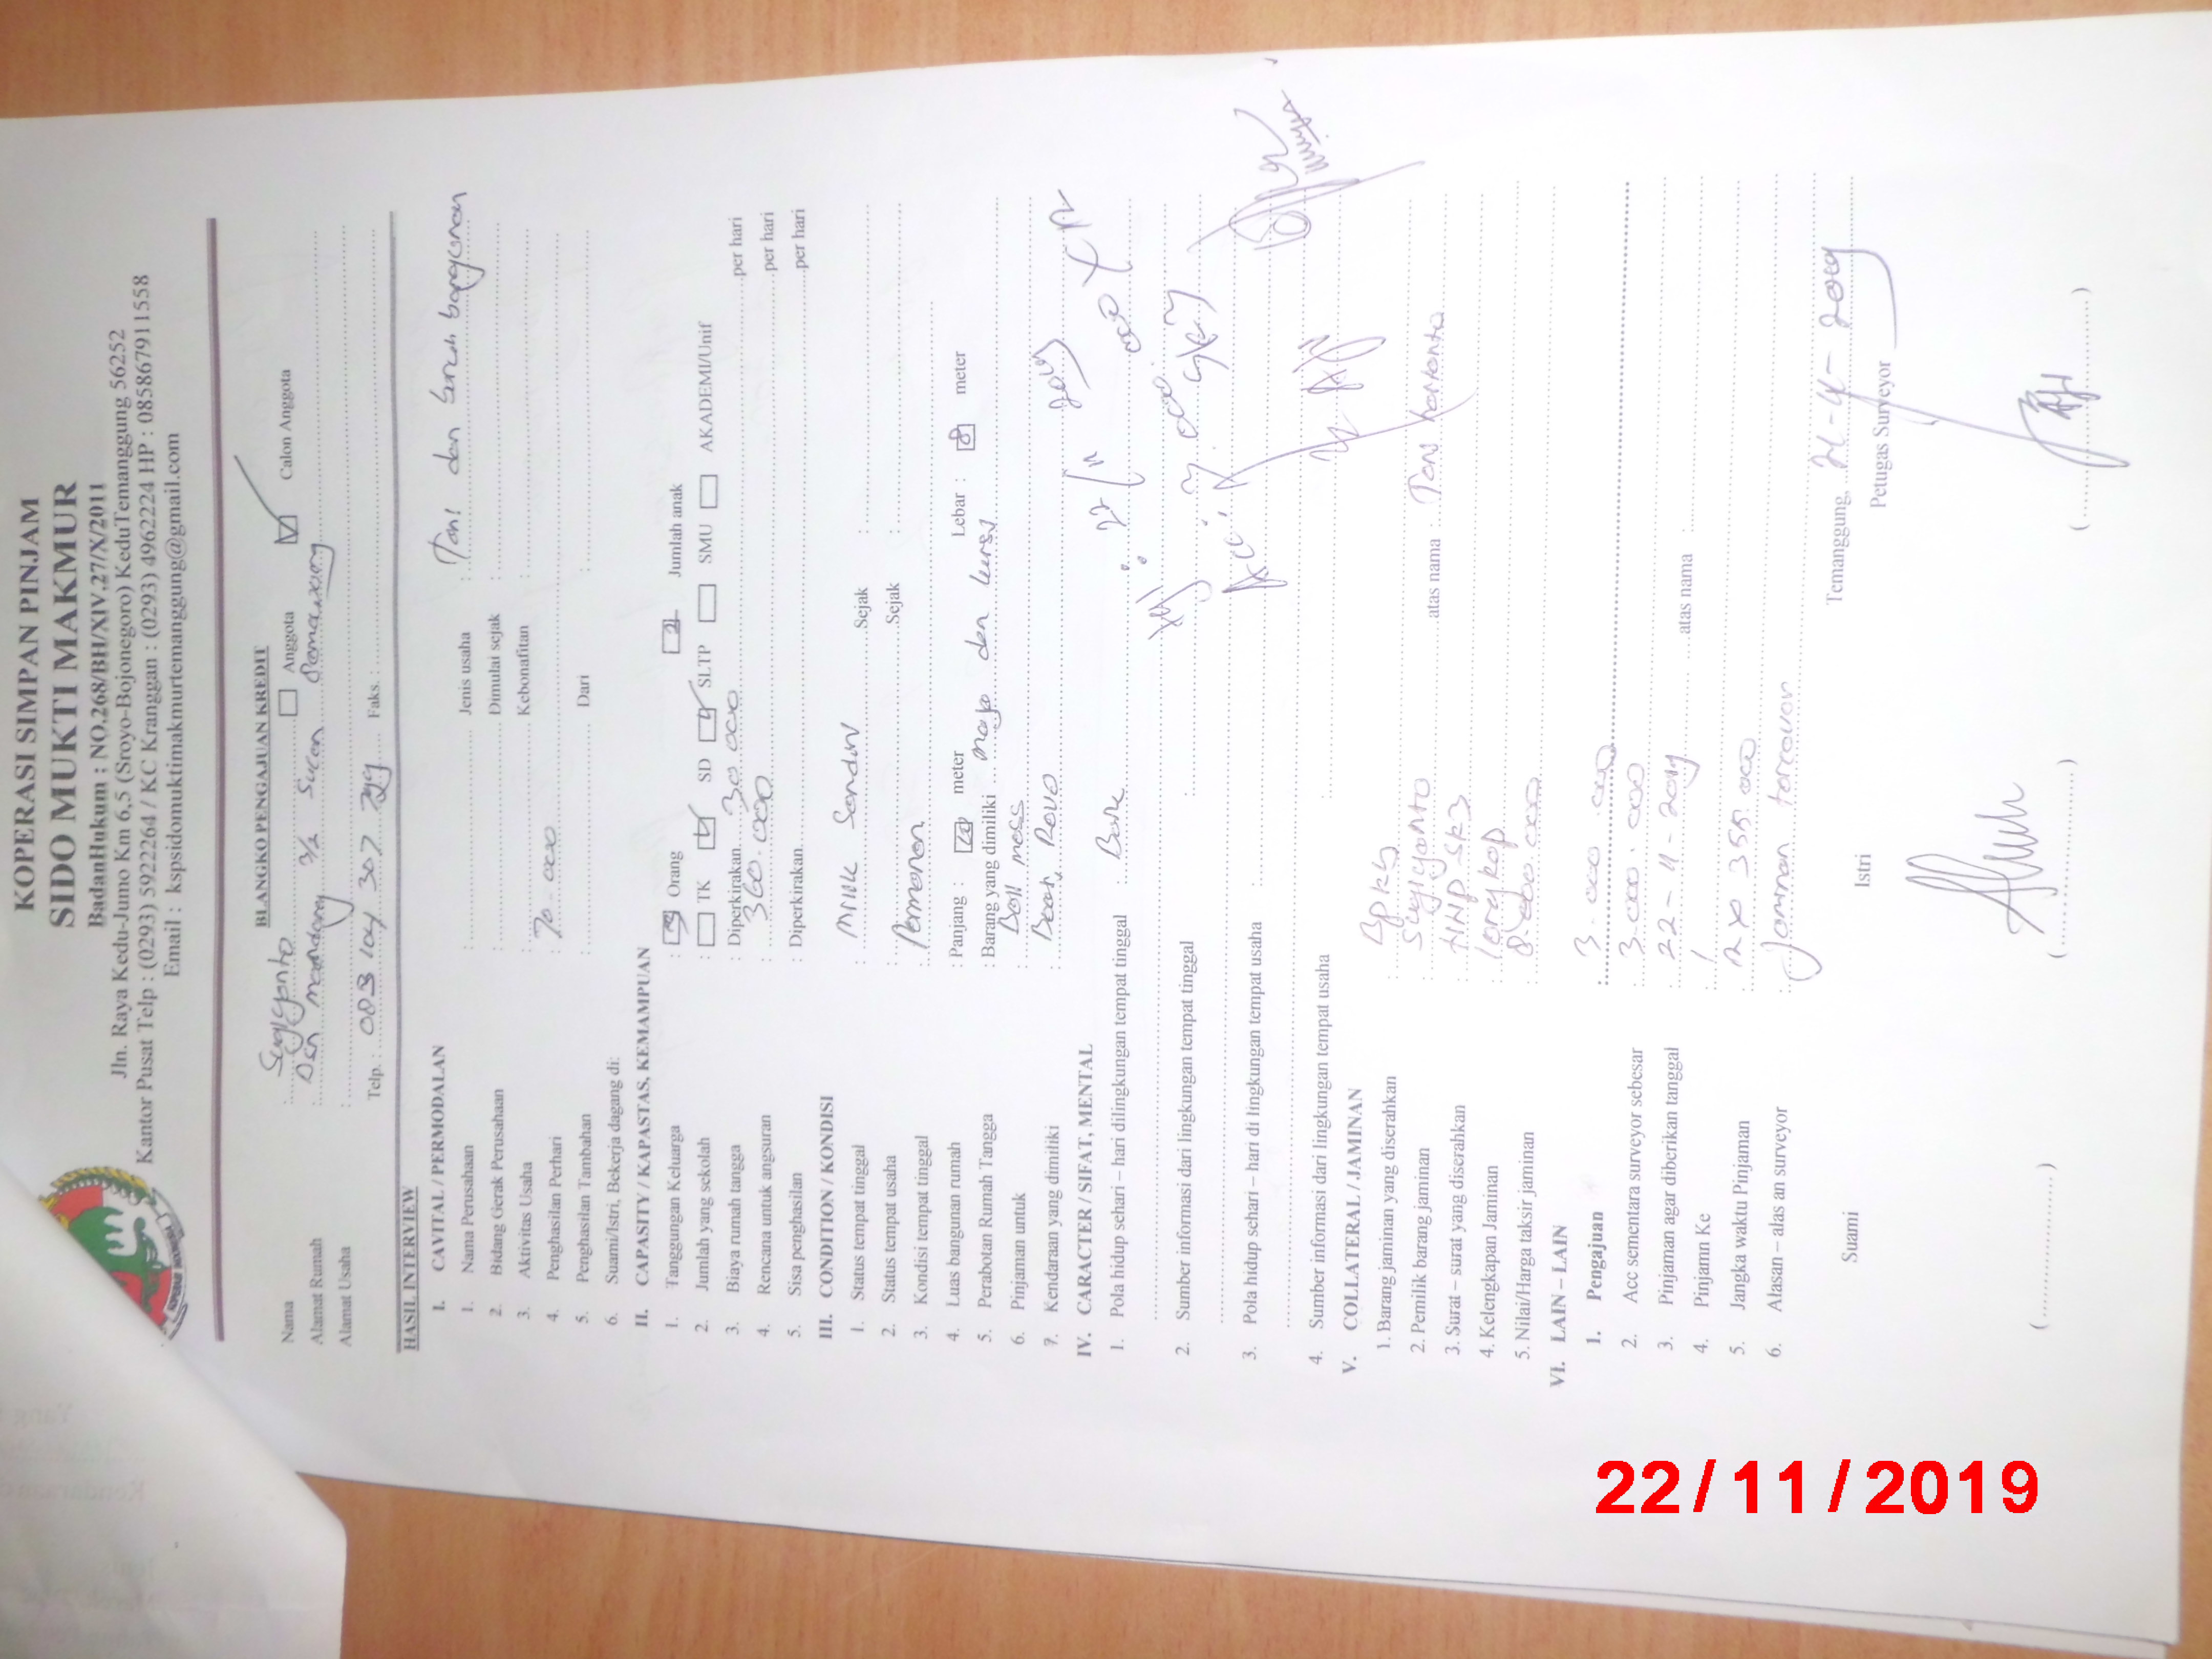 KOPERASI SIMPAN PINJAM
SIDO MUKTI MAKMUR
BadanHukum : NO.268/BH/XIV.27/X/2011
Jln. Raya Kedu-Jumo Km 6,5 (Sroyo-Bojonegoro) KeduTemanggung 56252
Kantor Pusat Telp : (0293) 5922264 / KC Kranggan : (0293) 4962224 HP : 085867911558
Email : kspsidomuktimakmurtemanggung@gmail.com
BLANGKO PENGAJUAN KREDIT
Nama : Sugiyanto Anggota Calon Anggota
Alamat Rumah : Dsn 3/2
Alamat Usaha :
Telp. : 083 104 307 729 Faks. :
HASIL INTERVIEW
I. CAVITAL / PERMODALAN
1. Nama Perusahaan : Jenis usaha : Tani dan buruh bangunan
2. Bidang Gerak Perusahaan : Dimulai sejak :
3. Aktivitas Usaha : Kebonafitan :
4. Penghasilan Perhari : 70.000
5. Penghasilan Tambahan : Dari :
6. Suami/Istri, Bekerja dagang di:
II. CAPASITY / KAPASTAS, KEMAMPUAN
1. Tanggungan Keluarga : Orang 2 Jumlah anak
2. Jumlah yang sekolah : TK SD SLTP SMU AKADEMI/Unif
3. Biaya rumah tangga : Diperkirakan 30.000 per hari
4. Rencana untuk angsuran : 360.000 per hari
5. Sisa penghasilan : Diperkirakan per hari
III. CONDITION / KONDISI
1. Status tempat tinggal : Milik Sendiri Sejak :
2. Status tempat usaha : Sejak :
3. Kondisi tempat tinggal : Permanen
4. Luas bangunan rumah : Panjang : meter Lebar : 8 meter
5. Perabotan Rumah Tangga : Barang yang dimiliki meja dan kursi
6. Pinjaman untuk :
7. Kendaraan yang dimiliki : Revo
IV. CARACTER / SIFAT, MENTAL
1. Pola hidup sehari – hari dilingkungan tempat tinggal : Baik
2. Sumber informasi dari lingkungan tempat tinggal :
3. Pola hidup sehari – hari di lingkungan tempat usaha :
4. Sumber informasi dari lingkungan tempat usaha :
V. COLLATERAL / JAMINAN
1. Barang jaminan yang diserahkan : Bpkb
2. Pemilik barang jaminan : Sugiyanto atas nama :
3. Surat – surat yang diserahkan :
4. Kelengkapan Jaminan : lengkap
5. Nilai/Harga taksir jaminan : 8.000.000
VI. LAIN – LAIN
1. Pengajuan : 3.000.000
2. Acc sementara surveyor sebesar : 3.000.000
3. Pinjaman agar diberikan tanggal : 22-11-2019
4. Pinjamn Ke : 1 atas nama :
5. Jangka waktu Pinjaman : 12 x 355.000
6. Alasan – alas an surveyor : Jaminan tercover
Temanggung,
Suami Istri Petugas Surveyor
(....................) (....................) (....................)
22/11/2019